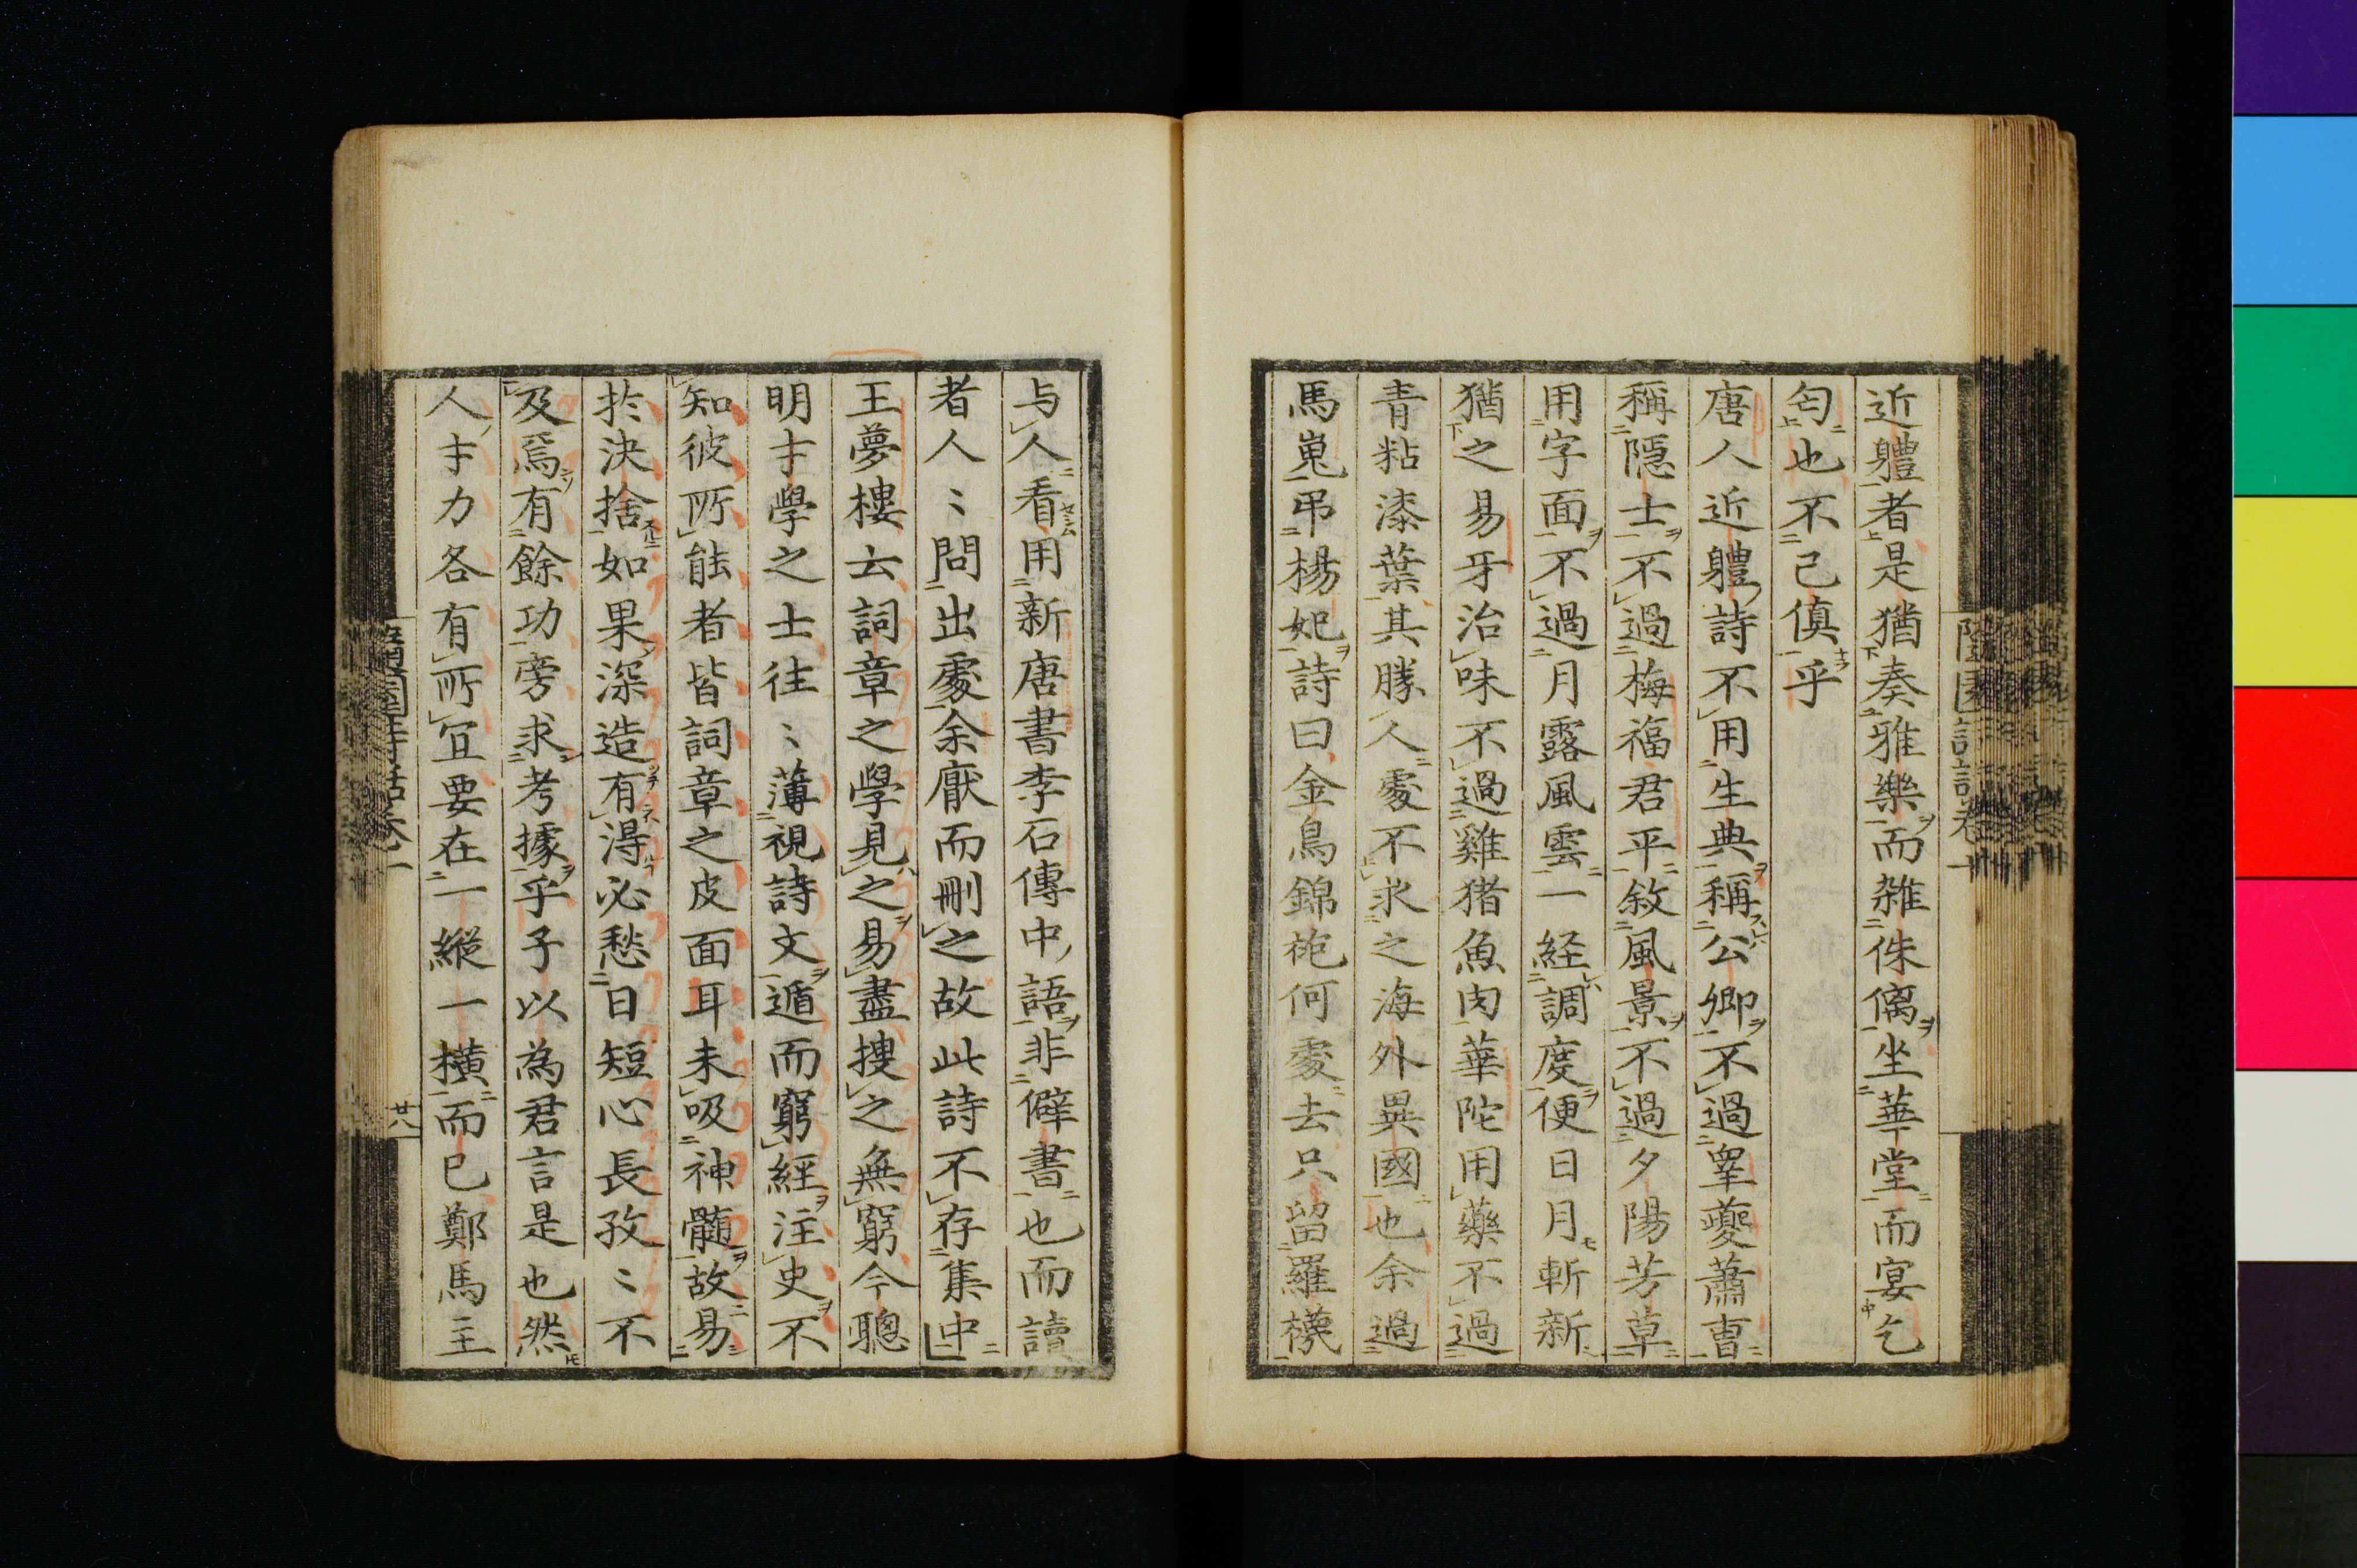 近軆者是猶奏雅樂而雜侏𠌯坐華堂而宴乞
匄也不已傎乎
唐人近軆詩不用生典稱公卿不過臯夔蕭曺
稱隱士不過梅福君平敘風景不過夕陽芳草
用字面不過月露風雲一経調度便日月斬新
猶之易牙治味不過雞猪魚肉華陀用藥不過
青粘漆葉其勝人處不求之海外異國也余過
馬嵬弔楊妃詩曰金鳥錦袍何處去只留羅襪
与人看用新唐書李石傳中語非僻書也而讀
者人〻問出處余厭而刪之故此詩不存集中
王夢樓云詞章之學見之易盡搜之無窮今聰
明才學之士往〻薄視詩文遁而窮經注史不
知彼所能者皆詞章之皮面耳未吸神髓故易
扵決捨如果深造有得必愁日短心長孜〻不
及焉有餘功旁求考據乎予以為君言是也然
人才力各有所宜要在一縱一橫而已鄭馬主
隨園詩話卷一
廿八